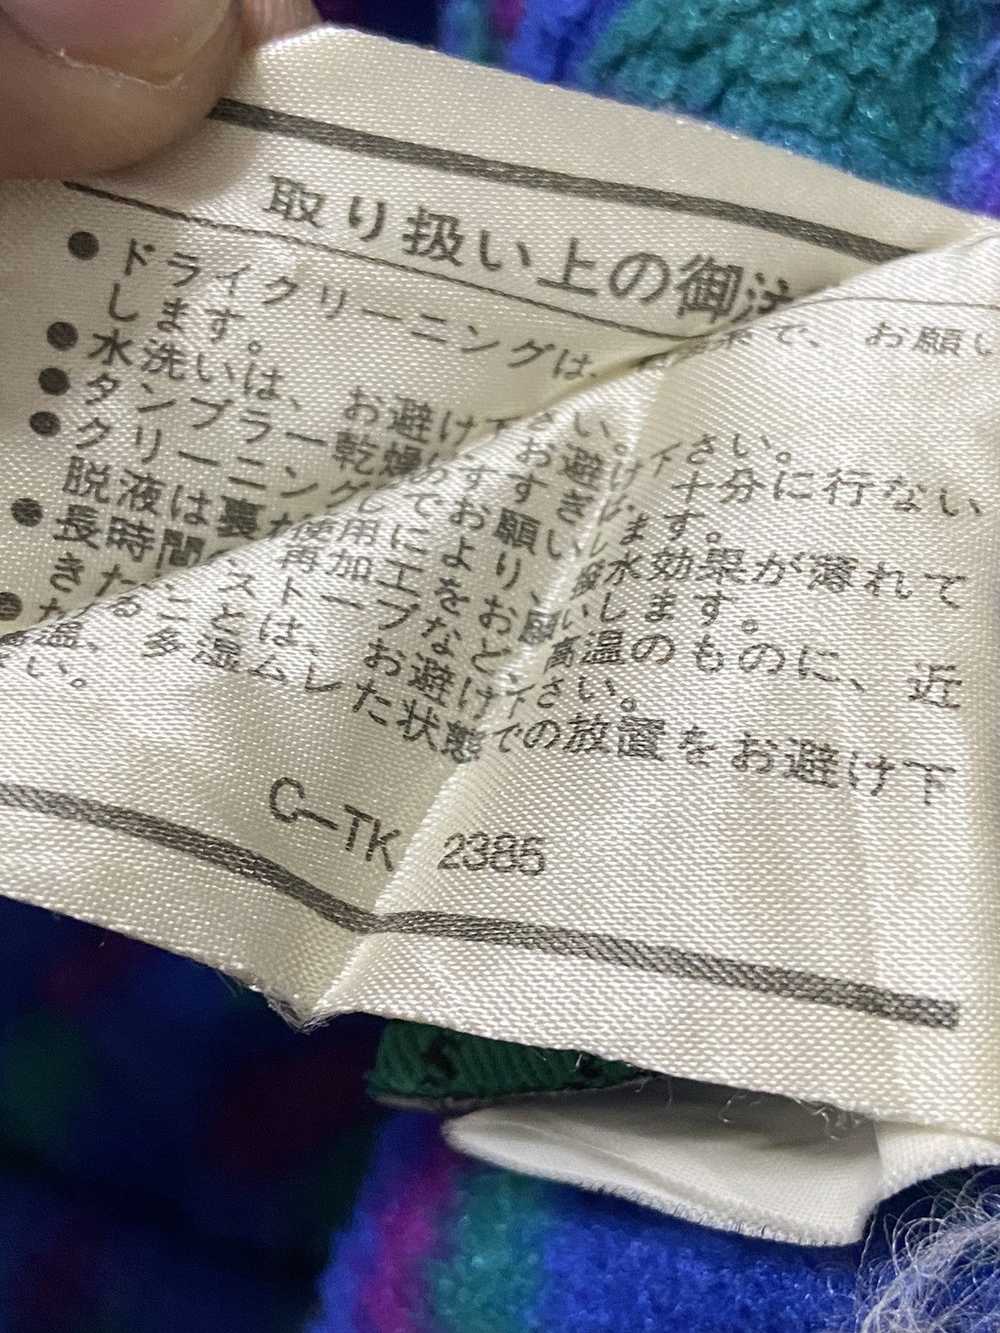 取り扱い上の御注
●ドライクリーニングは、 で、お願い
します。
●水洗いは、お避け下さい。
●タンブラー乾燥 お避け下さい。
●クリーニング で すすぎ 十分に行ない
脱液は 裏 使用 お願いします。
●長時間の 撥水効果が薄れて
きた 再加工をお願いします。
ストーブなど、高温のものに、近
ことは、お避け下さい。
●高温、多湿ムレた状態での放置をお避け下
さい。
C-TK 2385